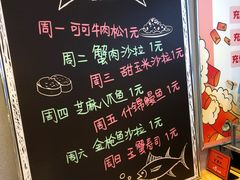 周一 可可牛肉松1元
周二 蟹肉沙拉 1元
周三 甜玉米沙拉1元
周四 芝麻八爪鱼1元
周五 什锦鳗鱼1元
周六 金枪鱼沙拉1元
周日 玉蟹寿司1元
充
充